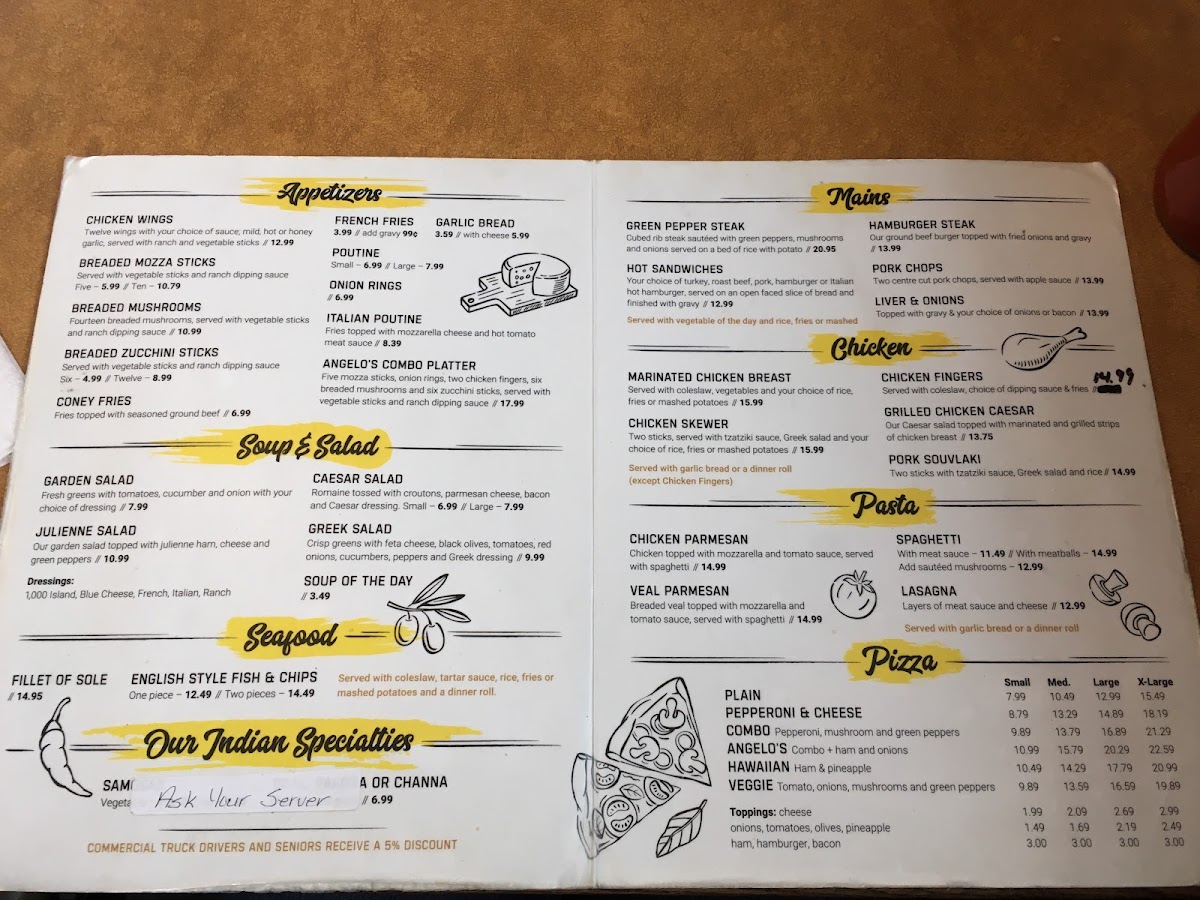 Appetizers
CHICKEN WINGS
Twelve wings with your choice of sauce; mild, hot or honey
garlic, served with ranch and vegetable sticks // 12.99
BREADED MOZZA STICKS
Served with vegetable sticks and ranch dipping sauce
Five – 5.99 // Ten – 10.79
BREADED MUSHROOMS
Fourteen breaded mushrooms, served with vegetable sticks
and ranch dipping sauce // 10.99
BREADED ZUCCHINI STICKS
Served with vegetable sticks and ranch dipping sauce
Six – 4.99 // Twelve – 8.99
CONEY FRIES
Fries topped with seasoned ground beef // 6.99
FRENCH FRIES
3.99 // add gravy 99¢
GARLIC BREAD
3.59 // with cheese 5.99
POUTINE
Small – 6.99 // Large – 7.99
ONION RINGS
// 6.99
ITALIAN POUTINE
Fries topped with mozzarella cheese and hot tomato
meat sauce // 8.39
ANGELO'S COMBO PLATTER
Five mozza sticks, onion rings, two chicken fingers, six
breaded mushrooms and six zucchini sticks, served with
vegetable sticks and ranch dipping sauce // 17.99
Soup & Salad
GARDEN SALAD
Fresh greens with tomatoes, cucumber and onion with your
choice of dressing // 7.99
JULIENNE SALAD
Our garden salad topped with julienne ham, cheese and
green peppers // 10.99
Dressings:
1,000 Island, Blue Cheese, French, Italian, Ranch
CAESAR SALAD
Romaine tossed with croutons, parmesan cheese, bacon
and Caesar dressing. Small – 6.99 // Large – 7.99
GREEK SALAD
Crisp greens with feta cheese, black olives, tomatoes, red
onions, cucumbers, peppers and Greek dressing // 9.99
SOUP OF THE DAY
// 3.49
Seafood
FILLET OF SOLE
// 14.95
ENGLISH STYLE FISH & CHIPS
One piece – 12.49 // Two pieces – 14.49
Served with coleslaw, tartar sauce, rice, fries or
mashed potatoes and a dinner roll.
Our Indian Specialties
SAM A OR CHANNA
Vegeta Ask Your Server // 6.99
COMMERCIAL TRUCK DRIVERS AND SENIORS RECEIVE A 5% DISCOUNT
Mains
GREEN PEPPER STEAK
Cubed rib steak sautéed with green peppers, mushrooms
and onions served on a bed of rice with potato // 20.95
HOT SANDWICHES
Your choice of turkey, roast beef, pork, hamburger or Italian
hot hamburger, served on an open faced slice of bread and
finished with gravy // 12.99
Served with vegetable of the day and rice, fries or mashed
HAMBURGER STEAK
Our ground beef burger topped with fried onions and gravy
// 13.99
PORK CHOPS
Two centre cut pork chops, served with apple sauce // 13.99
LIVER & ONIONS
Topped with gravy & your choice of onions or bacon // 13.99
Chicken
MARINATED CHICKEN BREAST
Served with coleslaw, vegetables and your choice of rice,
fries or mashed potatoes // 15.99
CHICKEN SKEWER
Two sticks, served with tzatziki sauce, Greek salad and your
choice of rice, fries or mashed potatoes // 15.99
Served with garlic bread or a dinner roll
(except Chicken Fingers)
CHICKEN FINGERS
Served with coleslaw, choice of dipping sauce & fries // 14.99
GRILLED CHICKEN CAESAR
Our Caesar salad topped with marinated and grilled strips
of chicken breast // 13.75
PORK SOUVLAKI
Two sticks with tzatziki sauce, Greek salad and rice // 14.99
Pasta
CHICKEN PARMESAN
Chicken topped with mozzarella and tomato sauce, served
with spaghetti // 14.99
VEAL PARMESAN
Breaded veal topped with mozzarella and
tomato sauce, served with spaghetti // 14.99
SPAGHETTI
With meat sauce – 11.49 // With meatballs – 14.99
Add sautéed mushrooms – 12.99
LASAGNA
Layers of meat sauce and cheese // 12.99
Served with garlic bread or a dinner roll
Pizza
Small Med. Large X-Large
PLAIN 7.99 10.49 12.99 15.49
PEPPERONI & CHEESE 8.79 13.29 14.89 18.19
COMBO Pepperoni, mushroom and green peppers 9.89 13.79 16.89 21.29
ANGELO'S Combo + ham and onions 10.99 15.79 20.29 22.59
HAWAIIAN Ham & pineapple 10.49 14.29 17.79 20.99
VEGGIE Tomato, onions, mushrooms and green peppers 9.89 13.59 16.59 19.89
Toppings: cheese 1.99 2.09 2.69 2.99
onions, tomatoes, olives, pineapple 1.49 1.69 2.19 2.49
ham, hamburger, bacon 3.00 3.00 3.00 3.00